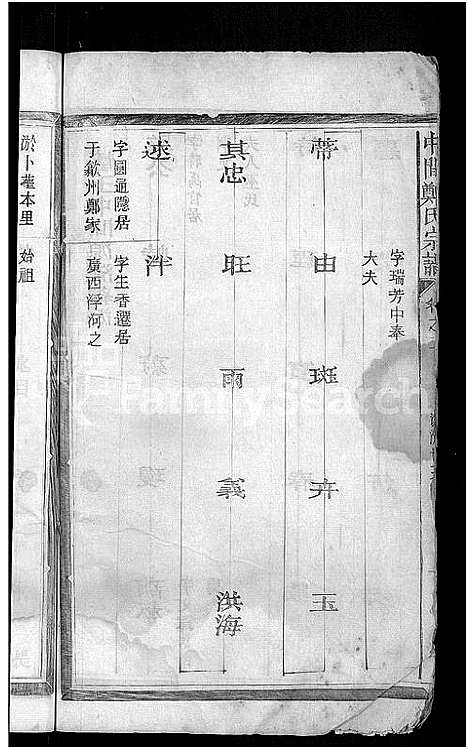 中間鄭氏宗譜
字瑞芳中奉
大夫
蒂 由 斑 卉 玉
其忠 旺 雨 義 洪海
述 泮
字圖通隱居 字生香遷居
于歙州鄭家 廣西浮河之
於卜塟本里 始祖
FamilySearch